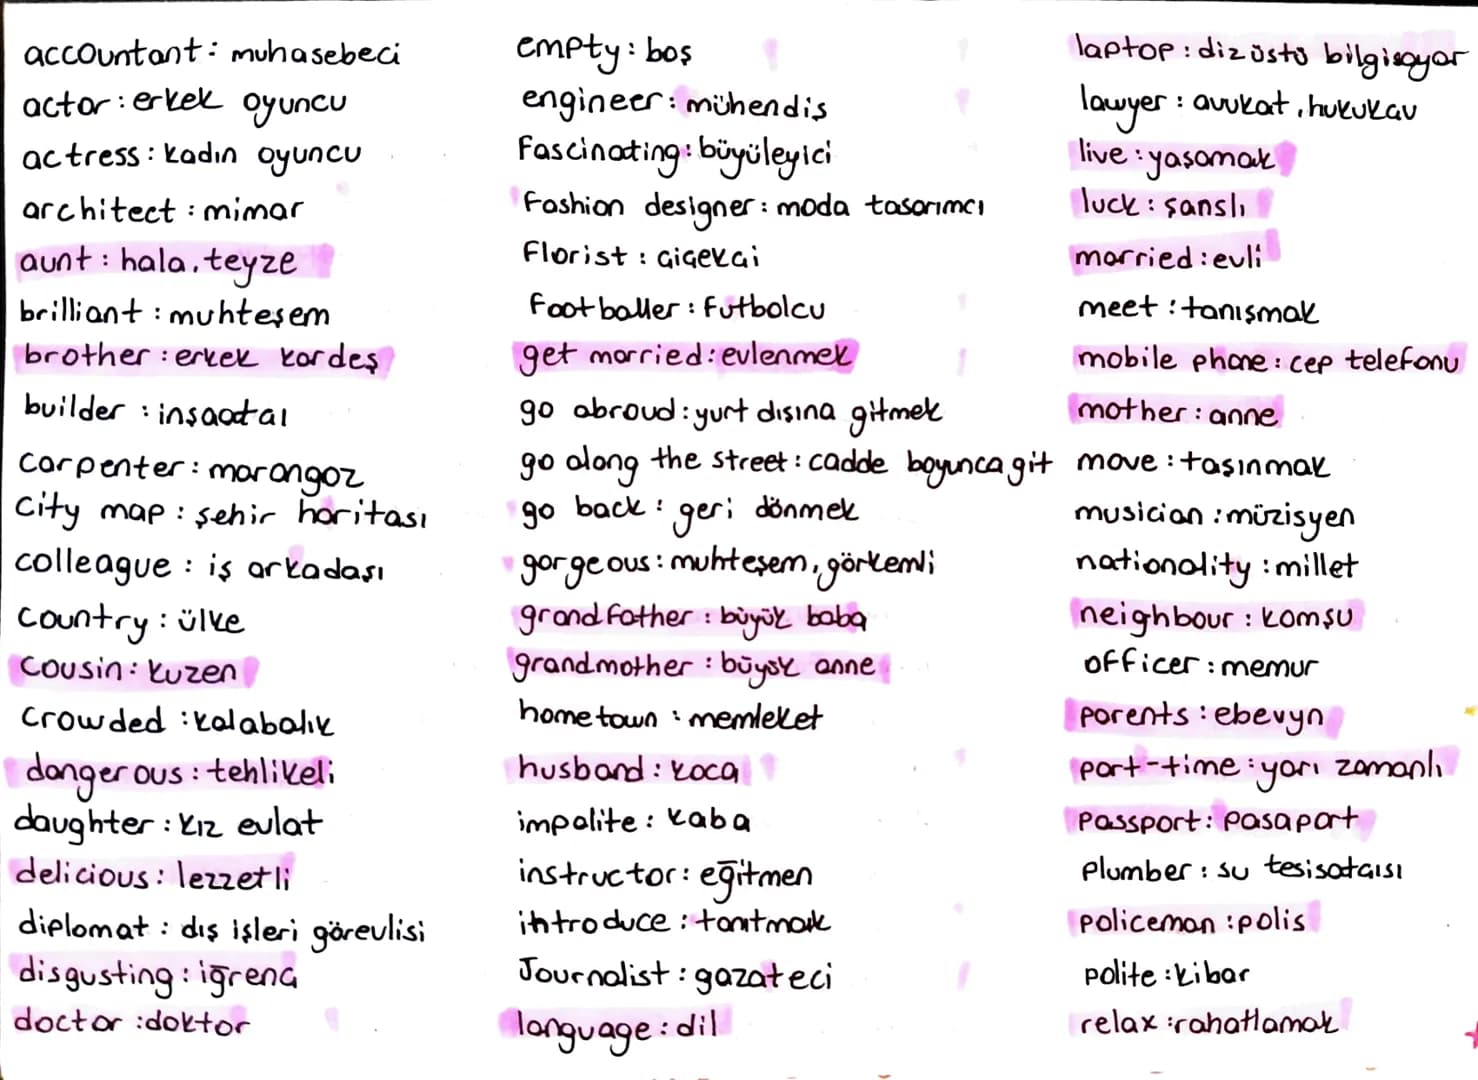 accountant: muhasebeci
actor: erkek oyuncu
actress: kadın oyuncu
architect: mimar
aunt: hala, teyze
brilliant: muhteşem
brother: erkek kardeş
builder: inşaatçı
carpenter: marangoz
city map: şehir haritası
colleague: iş arkadaşı
country: ülke
cousin: kuzen
crowded: kalabalık
dangerous: tehlikeli
daughter: kız evlat
delicious: lezzetli
diplomat: dış işleri görevlisi
disgusting: iğrenç
doctor: doktor
empty: boş
engineer: mühendis
fascinating: büyüleyici
fashion designer: moda tasarımcı
florist: çiçekçi
footballer: futbolcu
get married: evlenmek
go abroud: yurt dışına gitmek
go along the street: cadde boyunca git
go back: geri dönmek
gorgeous: muhteşem, görkemli
grandfather: büyük baba
grandmother: büyük anne
hometown: memleket
husband: koca
impolite: kaba
instructor: eğitmen
introduce: tanıtmak
Journalist: gazateci
language: dil
laptop: dizüstü bilgisayar
lawyer: avukat, hukukçu
live: yaşamak
luck: şanslı
married: evli
meet: tanışmak
mobile phone: cep telefonu
mother: anne
move: taşınmak
musician: müzisyen
nationality: millet
neighbour: komşu
officer: memur
parents: ebevyn
part-time: yarı zamanlı
passport: pasaport
plumber: su tesisatçısı
policeman: polis
polite: kibar
relax: rahatlamak